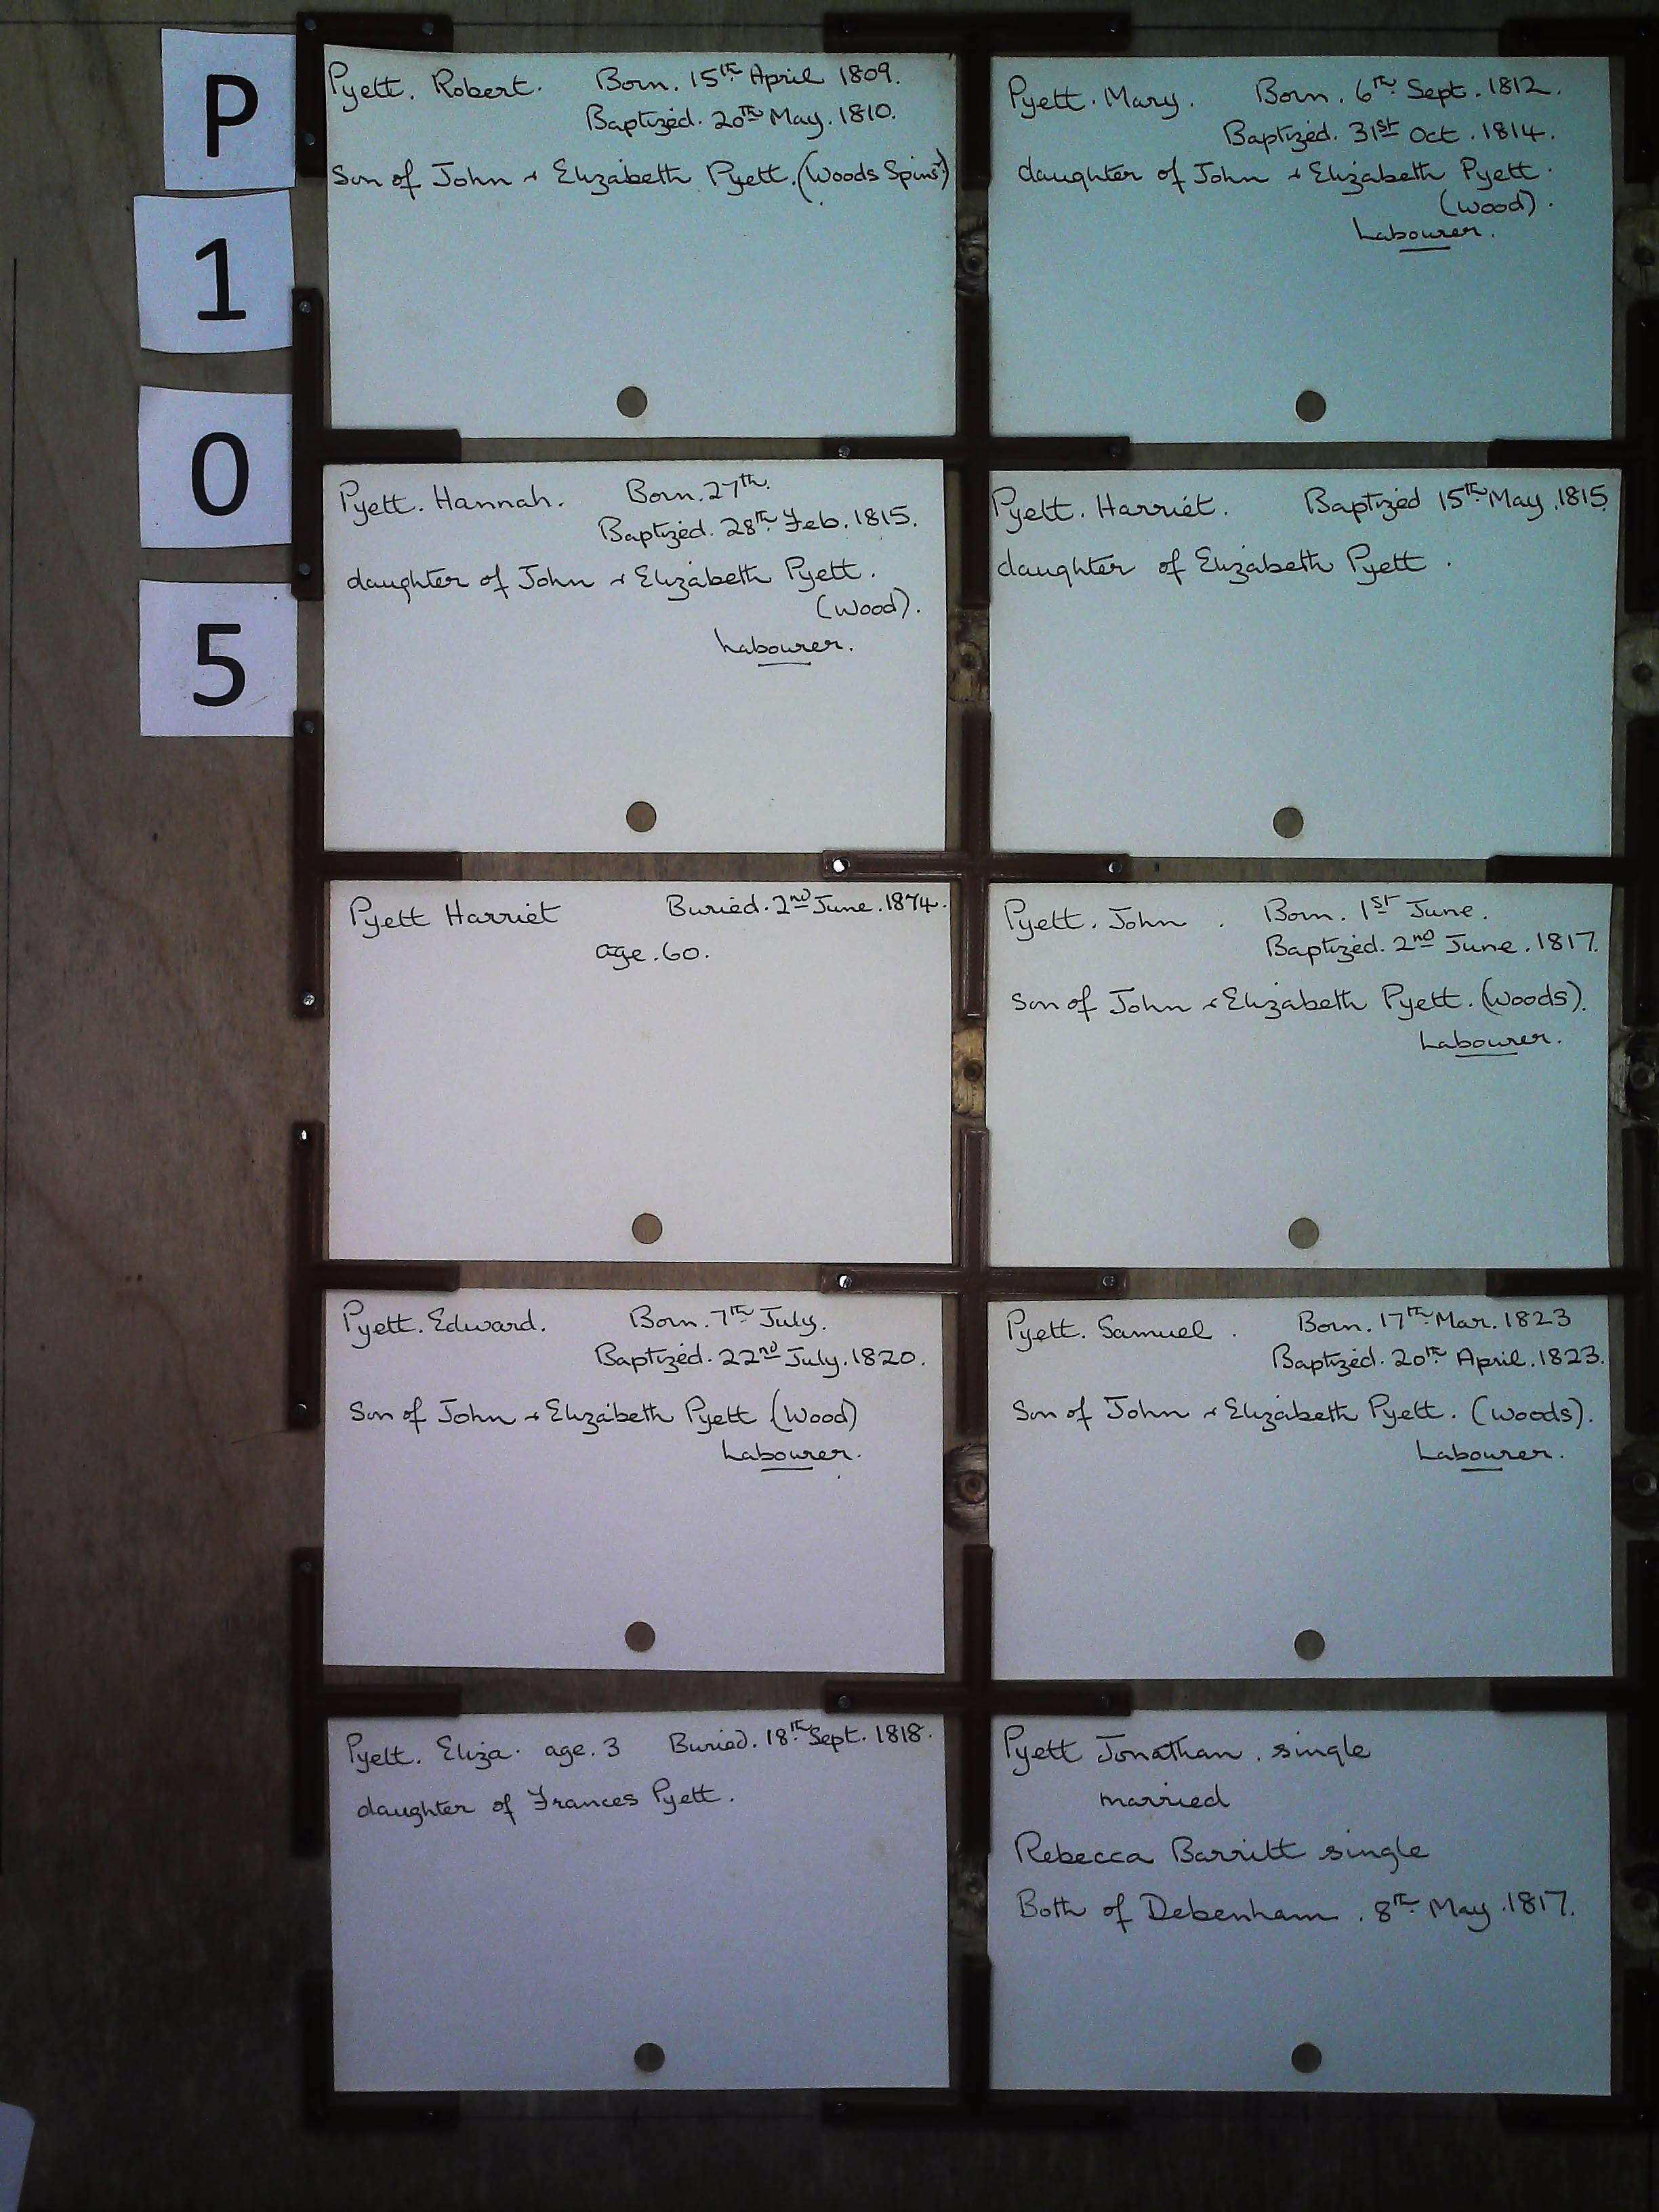 P
1
0
5
Pyett. Robert. Born. 15th April 1809.
Baptized. 20th May. 1810.
Son of John & Elizabeth Pyett. (Woods Spinstr)
Pyett. Mary. Born. 6th Sept. 1812.
Baptized. 31st Oct. 1814.
daughter of John & Elizabeth Pyett.
(Wood).
Labourer.
Pyett. Hannah. Born. 27th.
Baptized. 28th Feb. 1815.
daughter of John & Elizabeth Pyett.
(Wood).
Labourer.
Pyett. Harriet. Baptized 15th May. 1815.
daughter of Elizabeth Pyett.
Pyett Harriet Buried. 2nd June. 1874.
age. 60.
Pyett. John. Born. 1st June.
Baptized. 2nd June. 1817.
Son of John & Elizabeth Pyett. (Woods).
Labourer.
Pyett. Edward. Born. 7th July.
Baptized. 22nd July. 1820.
Son of John & Elizabeth Pyett (Wood)
Labourer.
Pyett. Samuel. Born. 17th Mar. 1823
Baptized. 20th April. 1823.
Son of John & Elizabeth Pyett. (Woods).
Labourer.
Pyett. Eliza. age. 3 Buried. 18th Sept. 1818.
daughter of Frances Pyett.
Pyett Jonathan. single
married
Rebecca Barritt single
Both of Debenham. 8th May. 1817.